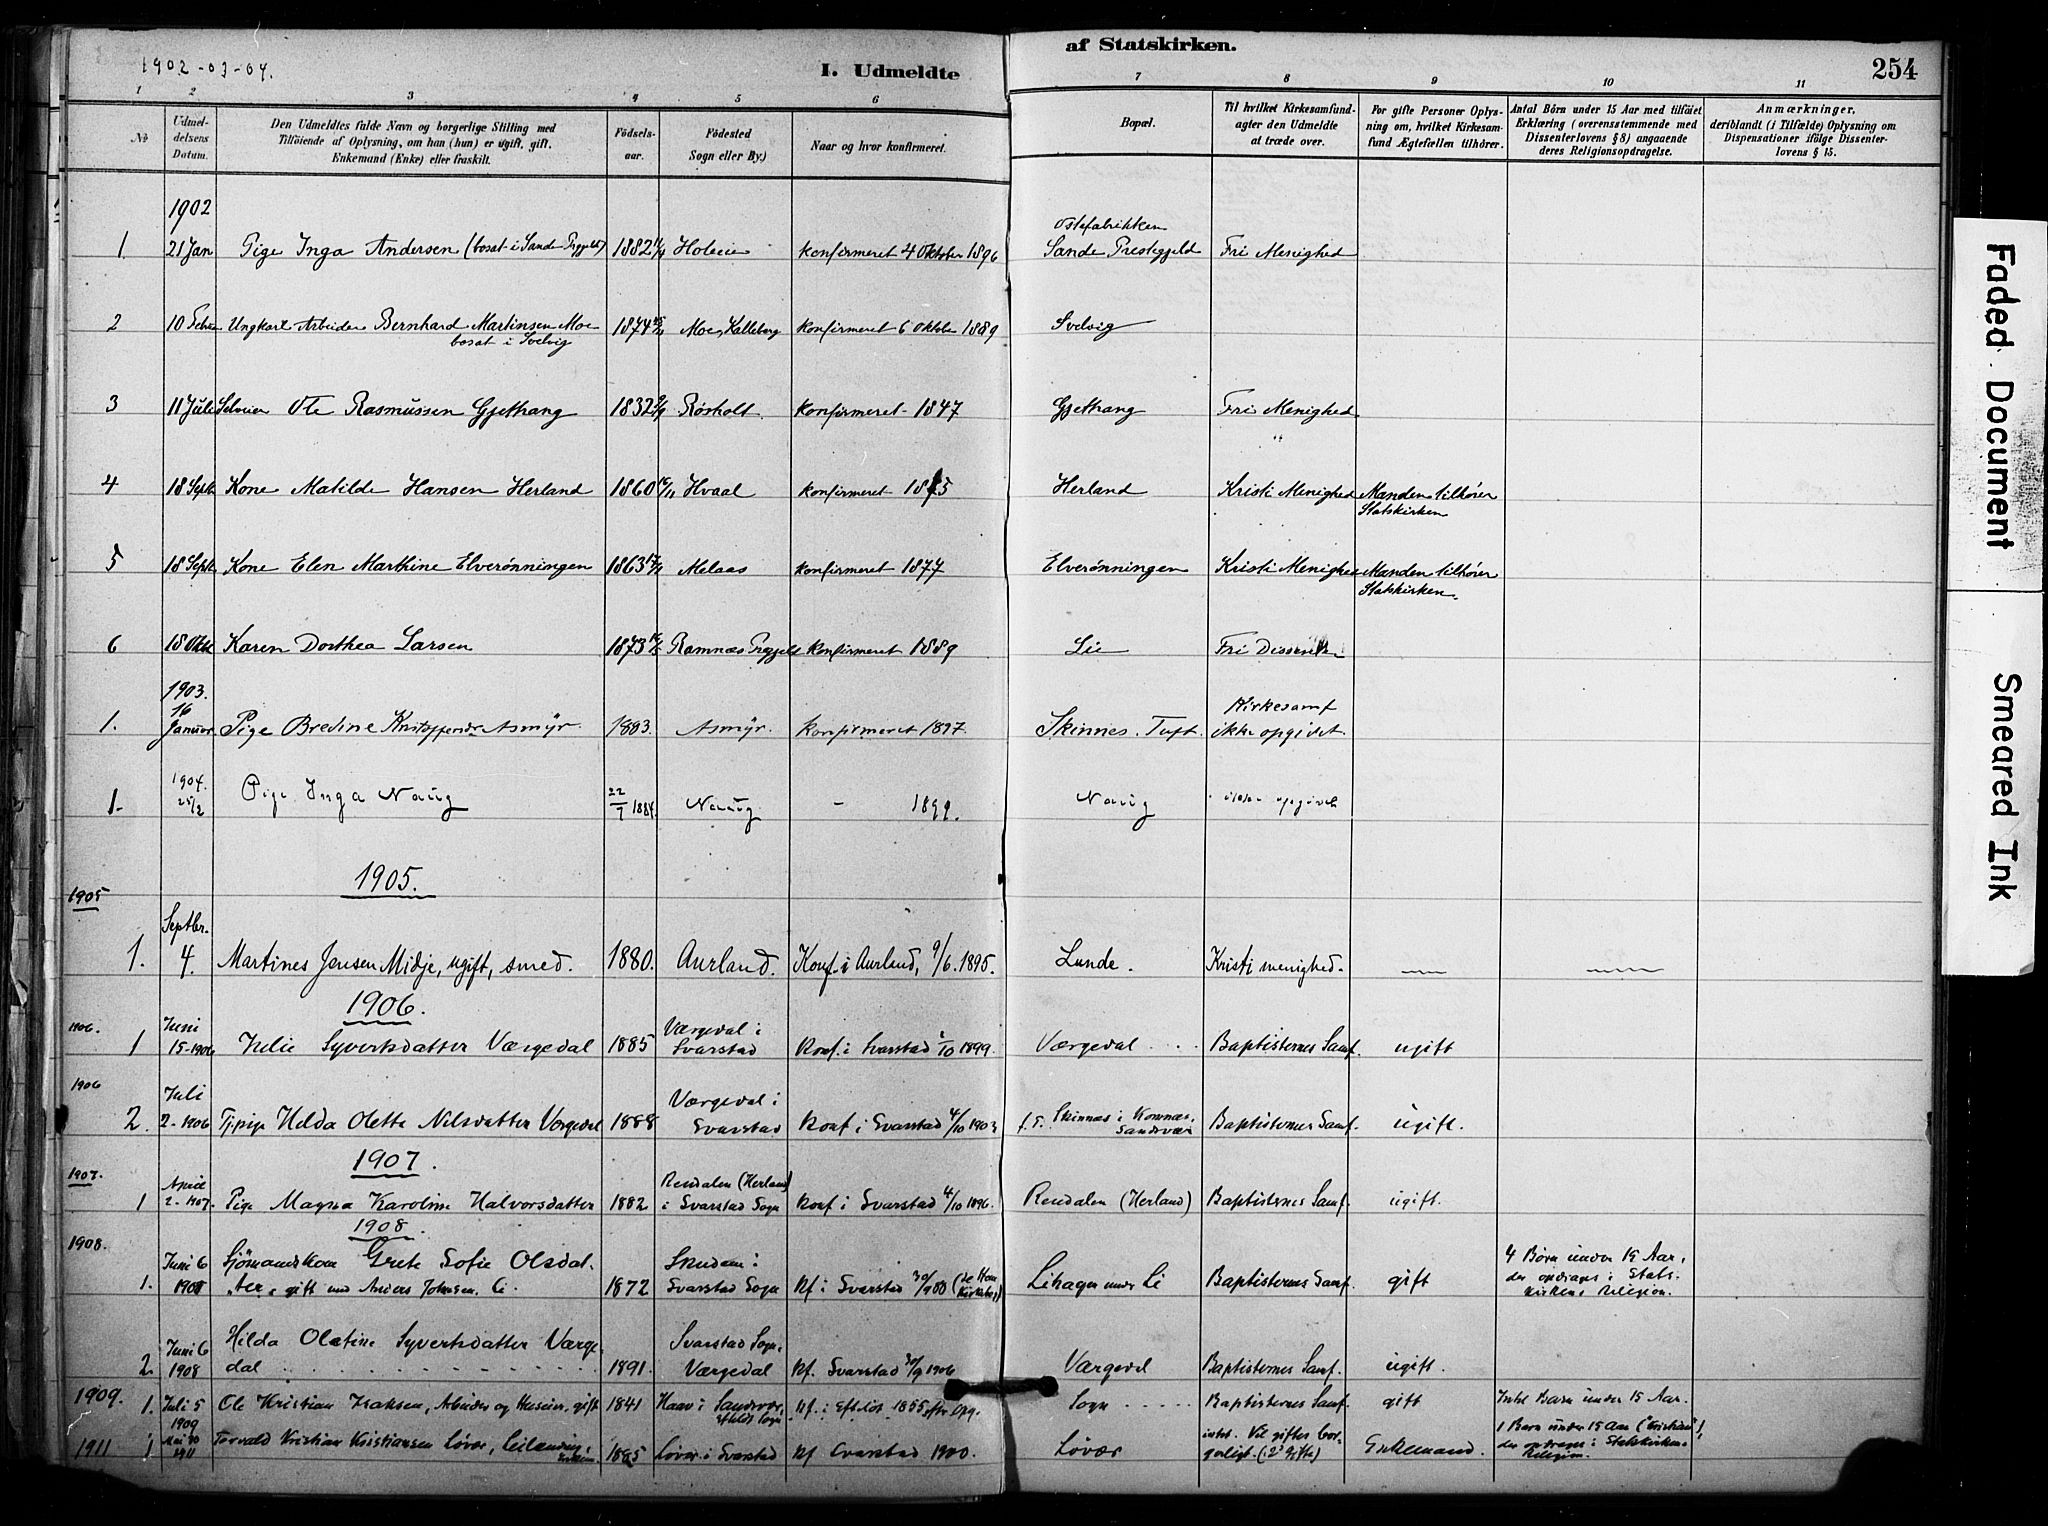 1902-03-04.
I. Udmeldte
af Statskirken.
254
1 2 3 4 5 6 7 8 9 10 11
No
Udmeldelsens Datum.
Den Udmeldtes fulde Navn og borgerlige Stilling med
Tilföiende af Oplysning, om han (hun) er ugift, gift.
Enkemand (Enke) eller fraskilt.
Födselsaar.
Födested
Sogn eller By.)
Naar og hvor konfirmeret.
Bopæl.
Til hvilket Kirkesamfund
agter den Udmeldte
at træde over.
For gifte Personer Oplysning om, hvilket Kirkesamfund Ægtefællen tilhörer.
Antal Börn under 15 Aar med tilföiet
Erklæring (overensstemmende med
Dissenterlovens § 8) angaaende
deres Religionsopdragelse.
Anmærkninger,
deriblandt (i Tilfælde) Oplysning om
Dispensationer ifölge Dissenterlovens § 15.
1902
1. 21 Jan Pige Inga Andersen (bosat i Sande Prgjeld) 1882 Holeie konfirmeret 4 Oktober 1896 Ostefabrikken Sande Prestegjeld Fri Menighed
2 10 Febr Ungkarl Arbeider Bernhard Martinsen Moe bosat i Svelvig 1874 Moe, Kalleberg konfirmeret 6 Oktober 1889 Svelvig
3 11 Juli Selveier Ole Rasmussen Gjethang 1832 Rørholt konfirmeret 1847 Gjethang Fri Menighed
4 18 Sept. Kone Matilde Hansen Herland 1860 Hvaal konfirmeret 1875 Herland Kristi Menighed Manden tilhører Statskirken
5 18 Sept. Kone Elen Marthine Elverønningen 1863 Melaas konfirmeret 1877 Elverønningen Kristi Menighed Manden tilhører Statskirken.
6 18 Okt Karen Dorthea Larsen 1873 Ramnæs Prgjeld konfirmeret 1889 Lie Fri Dissenter
1903.
1. 16 Januar Pige Bredine Kristoffersdr Asmyr 1883. Asmyr. konfirmeret 1897. Skinnes. Tuft. Kirkesamf ikke opgivet.
1. 1904. 25/2 Pige Inga Naug 22/7 1884. Naug - 1899. Naug ikke opgivet
1905.
1905
1. Septbr. 4. Martines Jensen Midje, ugift, smed. 1880. Aurland. Konf. i Aurland, 9/6. 1895. Lunde. Kristi menighed.
1906.
1906. 1 Juni 15-1906 Julie SyvertsdatterVærgedal 1885 Værgedal i Svarstad Konf. i Svarstad 1/10 1899. Værgedal Baptisternes Samf. ugift
1906 2. Juli 2-1906 Tj.pige Hilda Olette Nilsdatter Værgedal 1888 Værgedal i Svarstad Konf i Svarstad 4/10 1903 f.T. Skinnæs i Komnæs, Sandsvær Baptisternes Samf. ugift.
1907.
1907. 1 April 2-1907. Pige Magna Karoline Halvorsdatter 1882 Rendalen (Herland) i Svarstad Sogn Konf i Svarstad 4/10 1896. Rendalen (Herland) Baptisternes Samf. ugift.
1908.
1908. 1. Juni 6 1908 Sjömandskone Grete Sofie Olsdatter, gift med Anders Johnsen Li. 1872 Svarstad Sogn Kf i Svarstad Lihagen under Li Baptisternes Samf. gift 4 Børn under 15 Aar, der opdrages i Statskirkens Religion.
2. Juni 6 1908 Hilda Olatine Syvertsdatter Værgedal 1891. Svarstad Sogn. Værgedal Kf. Svarstad 30/9 1906 Værgedal Baptisternes Samf. ugift.
1909. 1. Juli 5 1909 Ole Kristian Isaksen, Arbeider og Huseier, gift 1841 Haav i Sandsvær, Efteløt Sogn Kf. i Efteløt 1855 efter Opg. Sogn Baptisternes Samf gift Intet Barn under 15 Aar.
1911 1 Mai 30 1911 Torvald Kristian Kristiansen Løvær, Leilænding, Enkem. 1885 Løvær i Svarstad Kf Svarstad 1900. Løvær intet. Vil giftes borgerligt. (2det Gifte) Enkemand. 1 Barn under 15 Aar ("Kristian"), der opdrages i Statskirkens Religion.
Faded Document
Smeared Ink